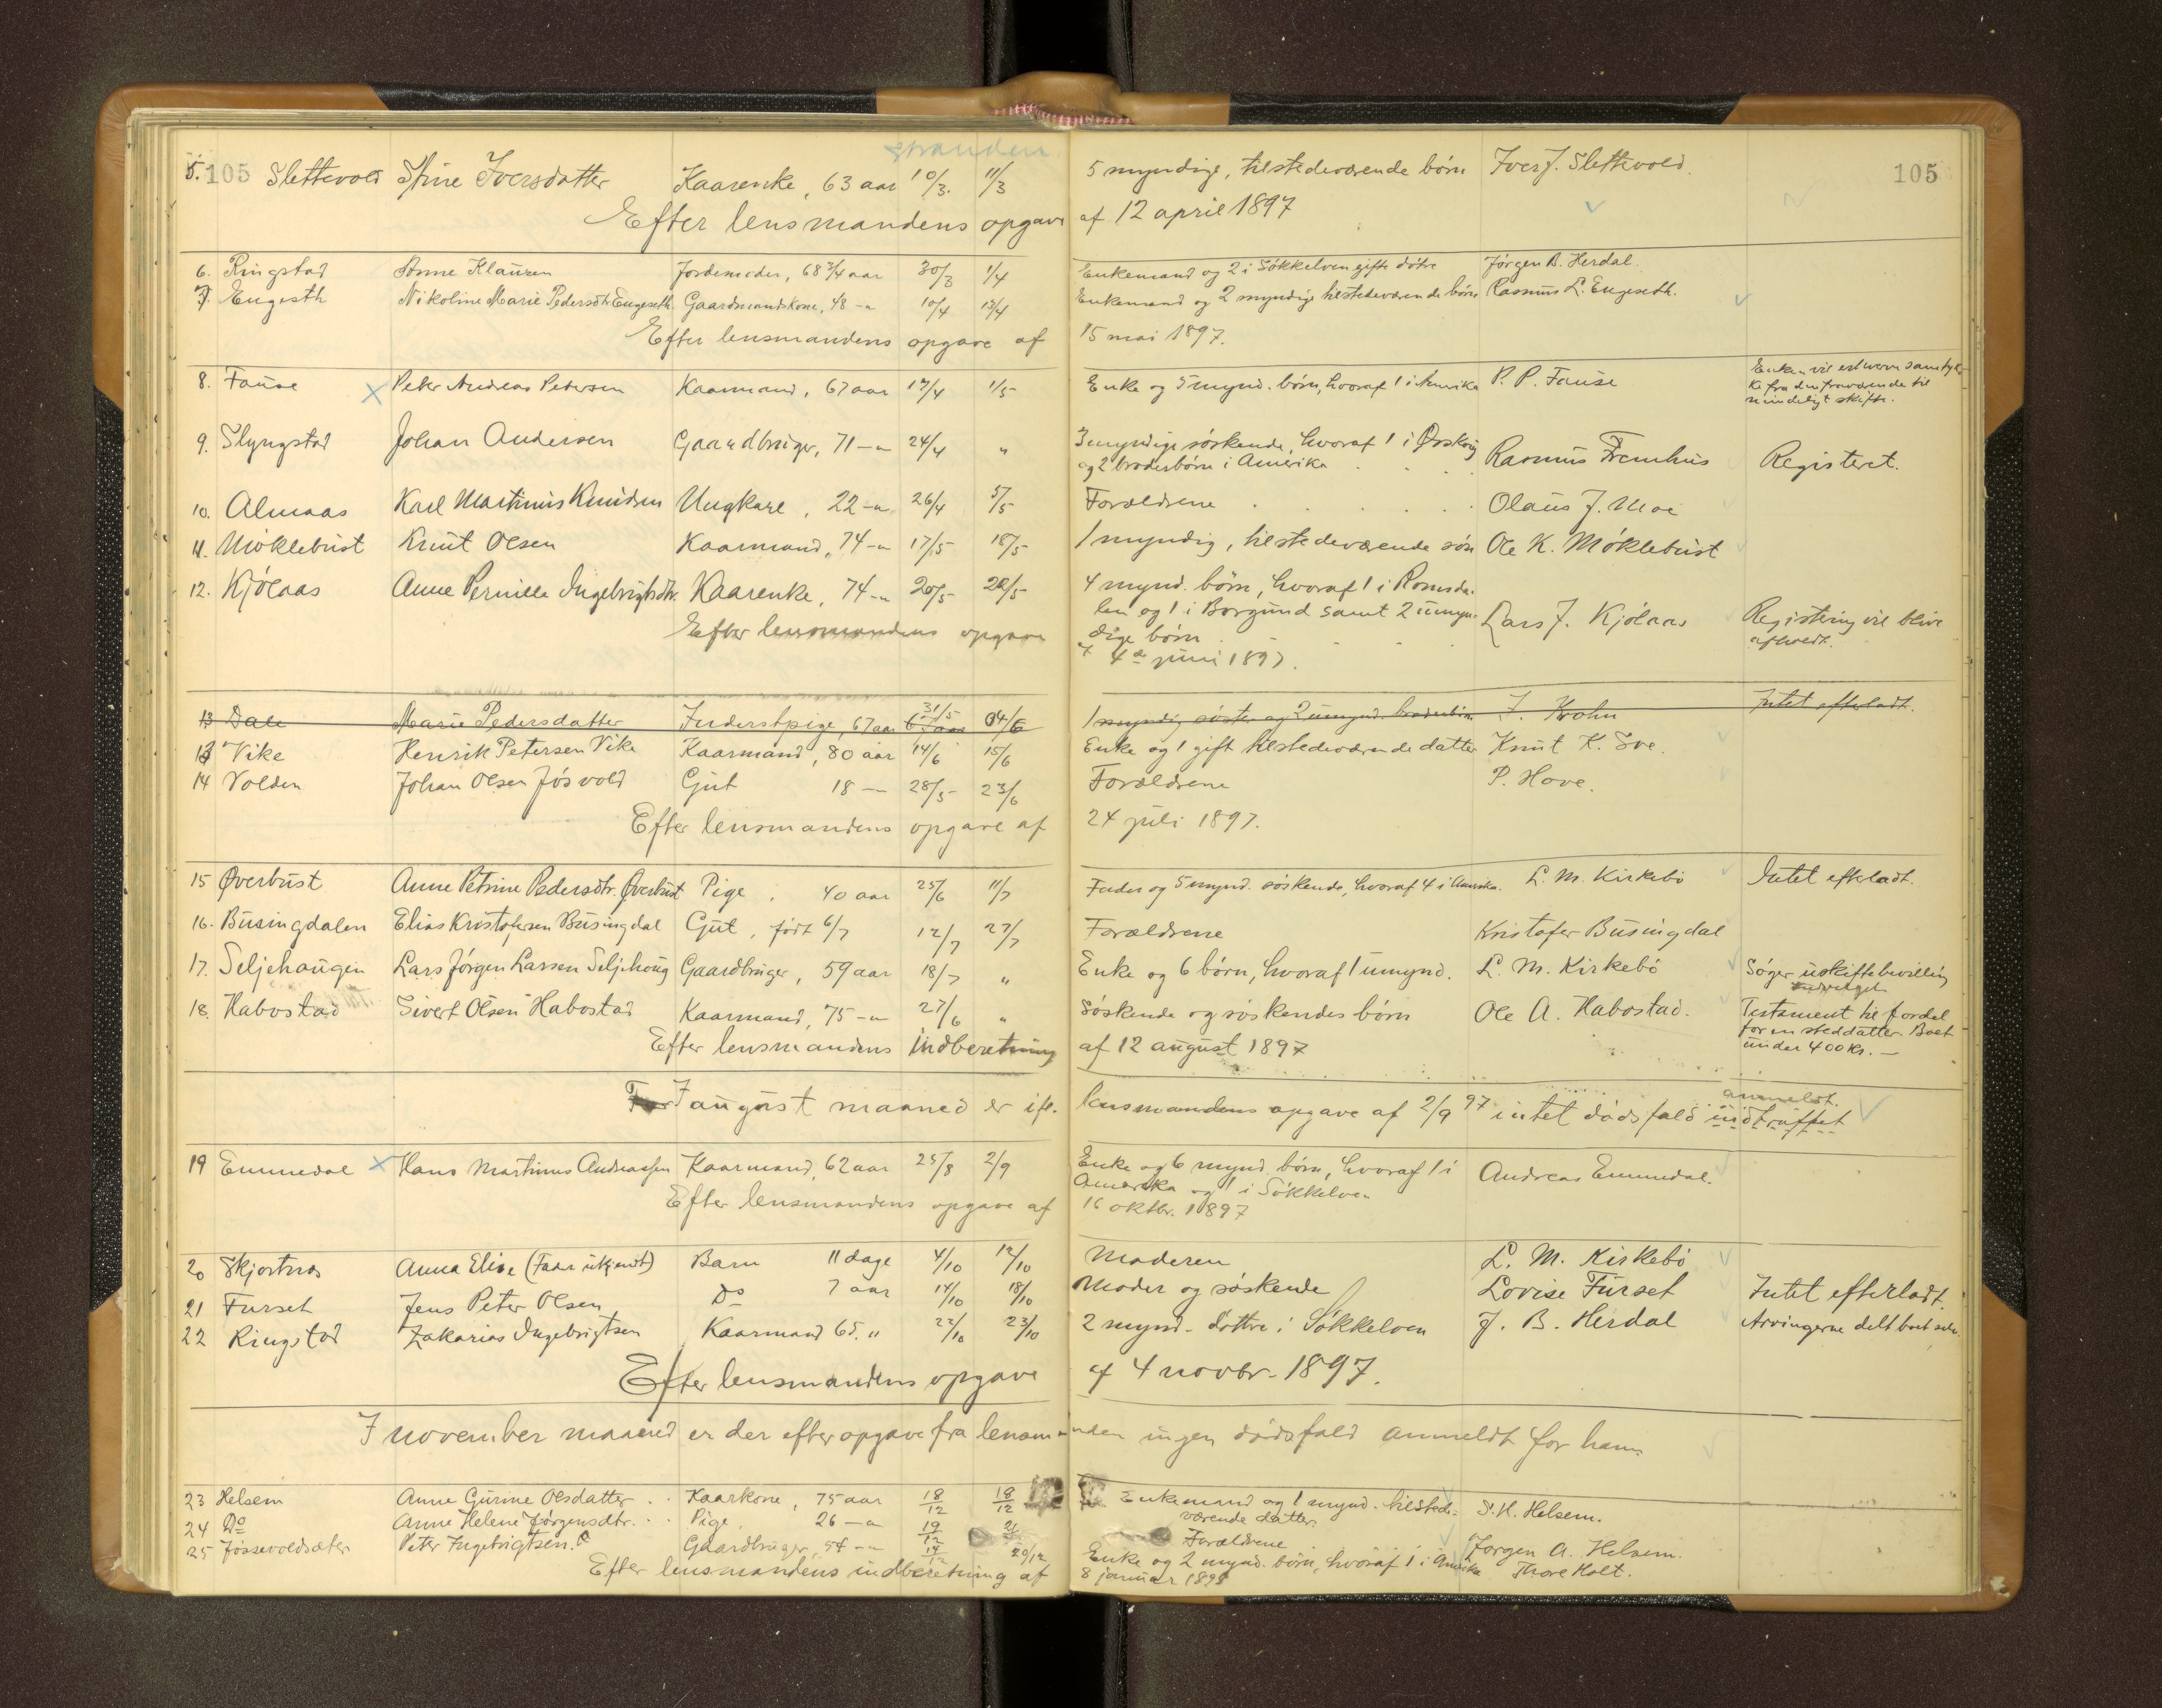 Stranden
5. 105 Slettevold Stine Iversdatter Kaarenke, 63 aar 10/3. 11/3 5 myndige, tilstedeværende børn Iver J. Slettevold. 105
Efter lensmandens opgave af 12 april 1897
6. Ringstad Anne Klausen Jordemoder, 68 3/4 aar 30/3 1/4 Enkemand og 2 i Søkkelven gifte døtre Jørgen B. Herdal.
7. Engeseth Nikoline Marie Pedersdtr. Engeseth Gaardmandskone, 48 -"- 10/4 13/4 Enkemand og 2 myndige tilstedeværende børn Rasmus L. Engeseth.
Efter lensmandens opgave af 15 mai 1897.
8. Fause Peter Andreas Petersen Kaarmand, 67 aar 17/4 1/5 Enke og 5 mynd. børn, hvoraf 1 i Amerika P. P. Fause Enken vil erhverve samtyk-
ke fra den fraværende til
mindeligt skifte.
9. Slyngstad Johan Andersen Gaardbruger, 71 -"- 24/4 " 3 myndige søskende, hvoraf 1 i Ørskog
og 2 broderbørn i Amerika Rasmus Fremhus Registeret.
10. Almaas Karl Martinus Knudsen Ungkarl, 22 -"- 26/4 5/5 Forældrene Olaus J. Moe
11. Møklebust Knut Olsen Kaarmand, 74 -"- 17/5 18/5 1 myndig, tilstedeværende søn Ole K. Møklebust
12. Kjølaas Anne Pernille Ingebrigtsdtr. Kaarenke, 74 -"- 20/5 22/5 4 mynd. børn, hvoraf 1 i Romsda-
len og 1 i Borgund samt 2 umyn- Lars J. Kjølaas Registering vil blive
dige børn afholdt.
Efter lensmandens opgave af 4de juni 1897.
13 Dale Marie Pedersdatter Inderstpige, 67 aar 31/5 04/6 1 myndig søster og 2 umynd. broderbørn J. Krohn Intet efterladt.
13 Vike Henrik Petersen Vike Kaarmand, 80 aar 14/6 15/6 Enke og 1 gift tilstedeværende datter Knut K. Sve.
14 Volden Johan Olsen Jøsvold Gut 18 -"- 28/5 23/6 Forældrene P. Hove.
Efter lensmandens opgave af 24 juli 1897.
15 Øverbust Anne Petrine Pedersdtr. Øverbust Pige, 40 aar 25/6 11/7 Fader og 5 mynd. søskende, hvoraf 4 i Amerika. L. M. Kirkebø Intet efterladt.
16. Busingdalen Elias Kristofersen Busingdal Gut, født 6/7 12/7 27/7 Forældrene Kristofer Busingdal
17. Seljehaugen Lars Jørgen Larsen Seljehoug Gaardbruger, 59 aar 18/7 " Enke og 6 børn, hvoraf 1 umynd. L. M. Kirkebø Søger uskiftebevilling
18. Habostad Sivert Olsen Habostad Kaarmand, 75 -"- 27/6 " Søskende og søskendes børn Ole A. Habostad. Testament til fordel
for en steddatter. Boet
under 400 kr. -
Efter lensmandens indberetning af 12 august 1897
I august maaned er ifl. lensmandens opgave af 2/9 97 intet dødsfald indtruffet
anmeldt.
19 Emmedal Hans Martinus Andreassen Kaarmand, 62 aar 25/8 2/9 Enke og 6 mynd. børn, hvoraf 1 i Andreas Emmedal.
Amerika og 1 i Søkkelven
Efter lensmandens opgave af 16 oktbr. 1897
20 Skjortnes Anna Elise (Faar ukjendt) Barn 11 dage 4/10 12/10 Moderen L. M. Kirkebø
21 Furset Jens Peter Olsen Do 7 aar 14/10 18/10 Moder og søskende Lovise Furset Intet efterladt.
22 Ringstad Zakarias Ingebrigtsen Kaarmand 65 " 22/10 23/10 2 mynd. døttre i Søkkelven J. B. Herdal Arvingerne delt boet selv.
Efter lensmandens opgave af 4 novbr. 1897.
I november maaned er der efter opgave fra lensmanden ingen dødsfald anmeldt for ham.
23 Helsem Anne Gurine Olsdatter Kaarkone, 75 aar 18/12 18/12 Enkemand og 1 mynd. tilstede- S. H. Helsem.
værende datter.
24 Do Anne Helene Jørgensdtr. Pige, 26 -"- 19/12 21 Forældrene Jørgen A. Helsem.
25 Jøssevoldsæter Peter Ingebrigtsen Gaardbruger, 54 -"- 14/12 20/12 Enke og 2 mynd. børn, hvoraf 1 i Amerika Thore Holt.
Efter lensmandens indberetning af 8 januar 1898